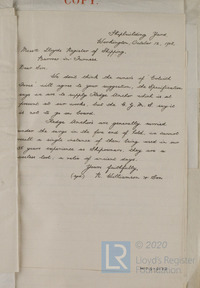 COPY.
Shipbuilding Yard
Workington, October 12, 190
Messrs Lloyds Register of Shipping
Barrow in Furness
Dear Sir,
We don't think the owners of
will agree to your suggestion. The Specification
says we are to supply Sledge Anchor which is at
present at our works, but the
is not to go on board.
Sledge Anchors are generally carried
under the in the fore end of hold, we cannot
recall a single instance of them being used in our
years experience as Shipowners. They are a
useless tool, a relic of ancient days.
Yours faithfully,
(sgd) R. Williamson & Son
© 2020
Lloyd's Register
Foundation